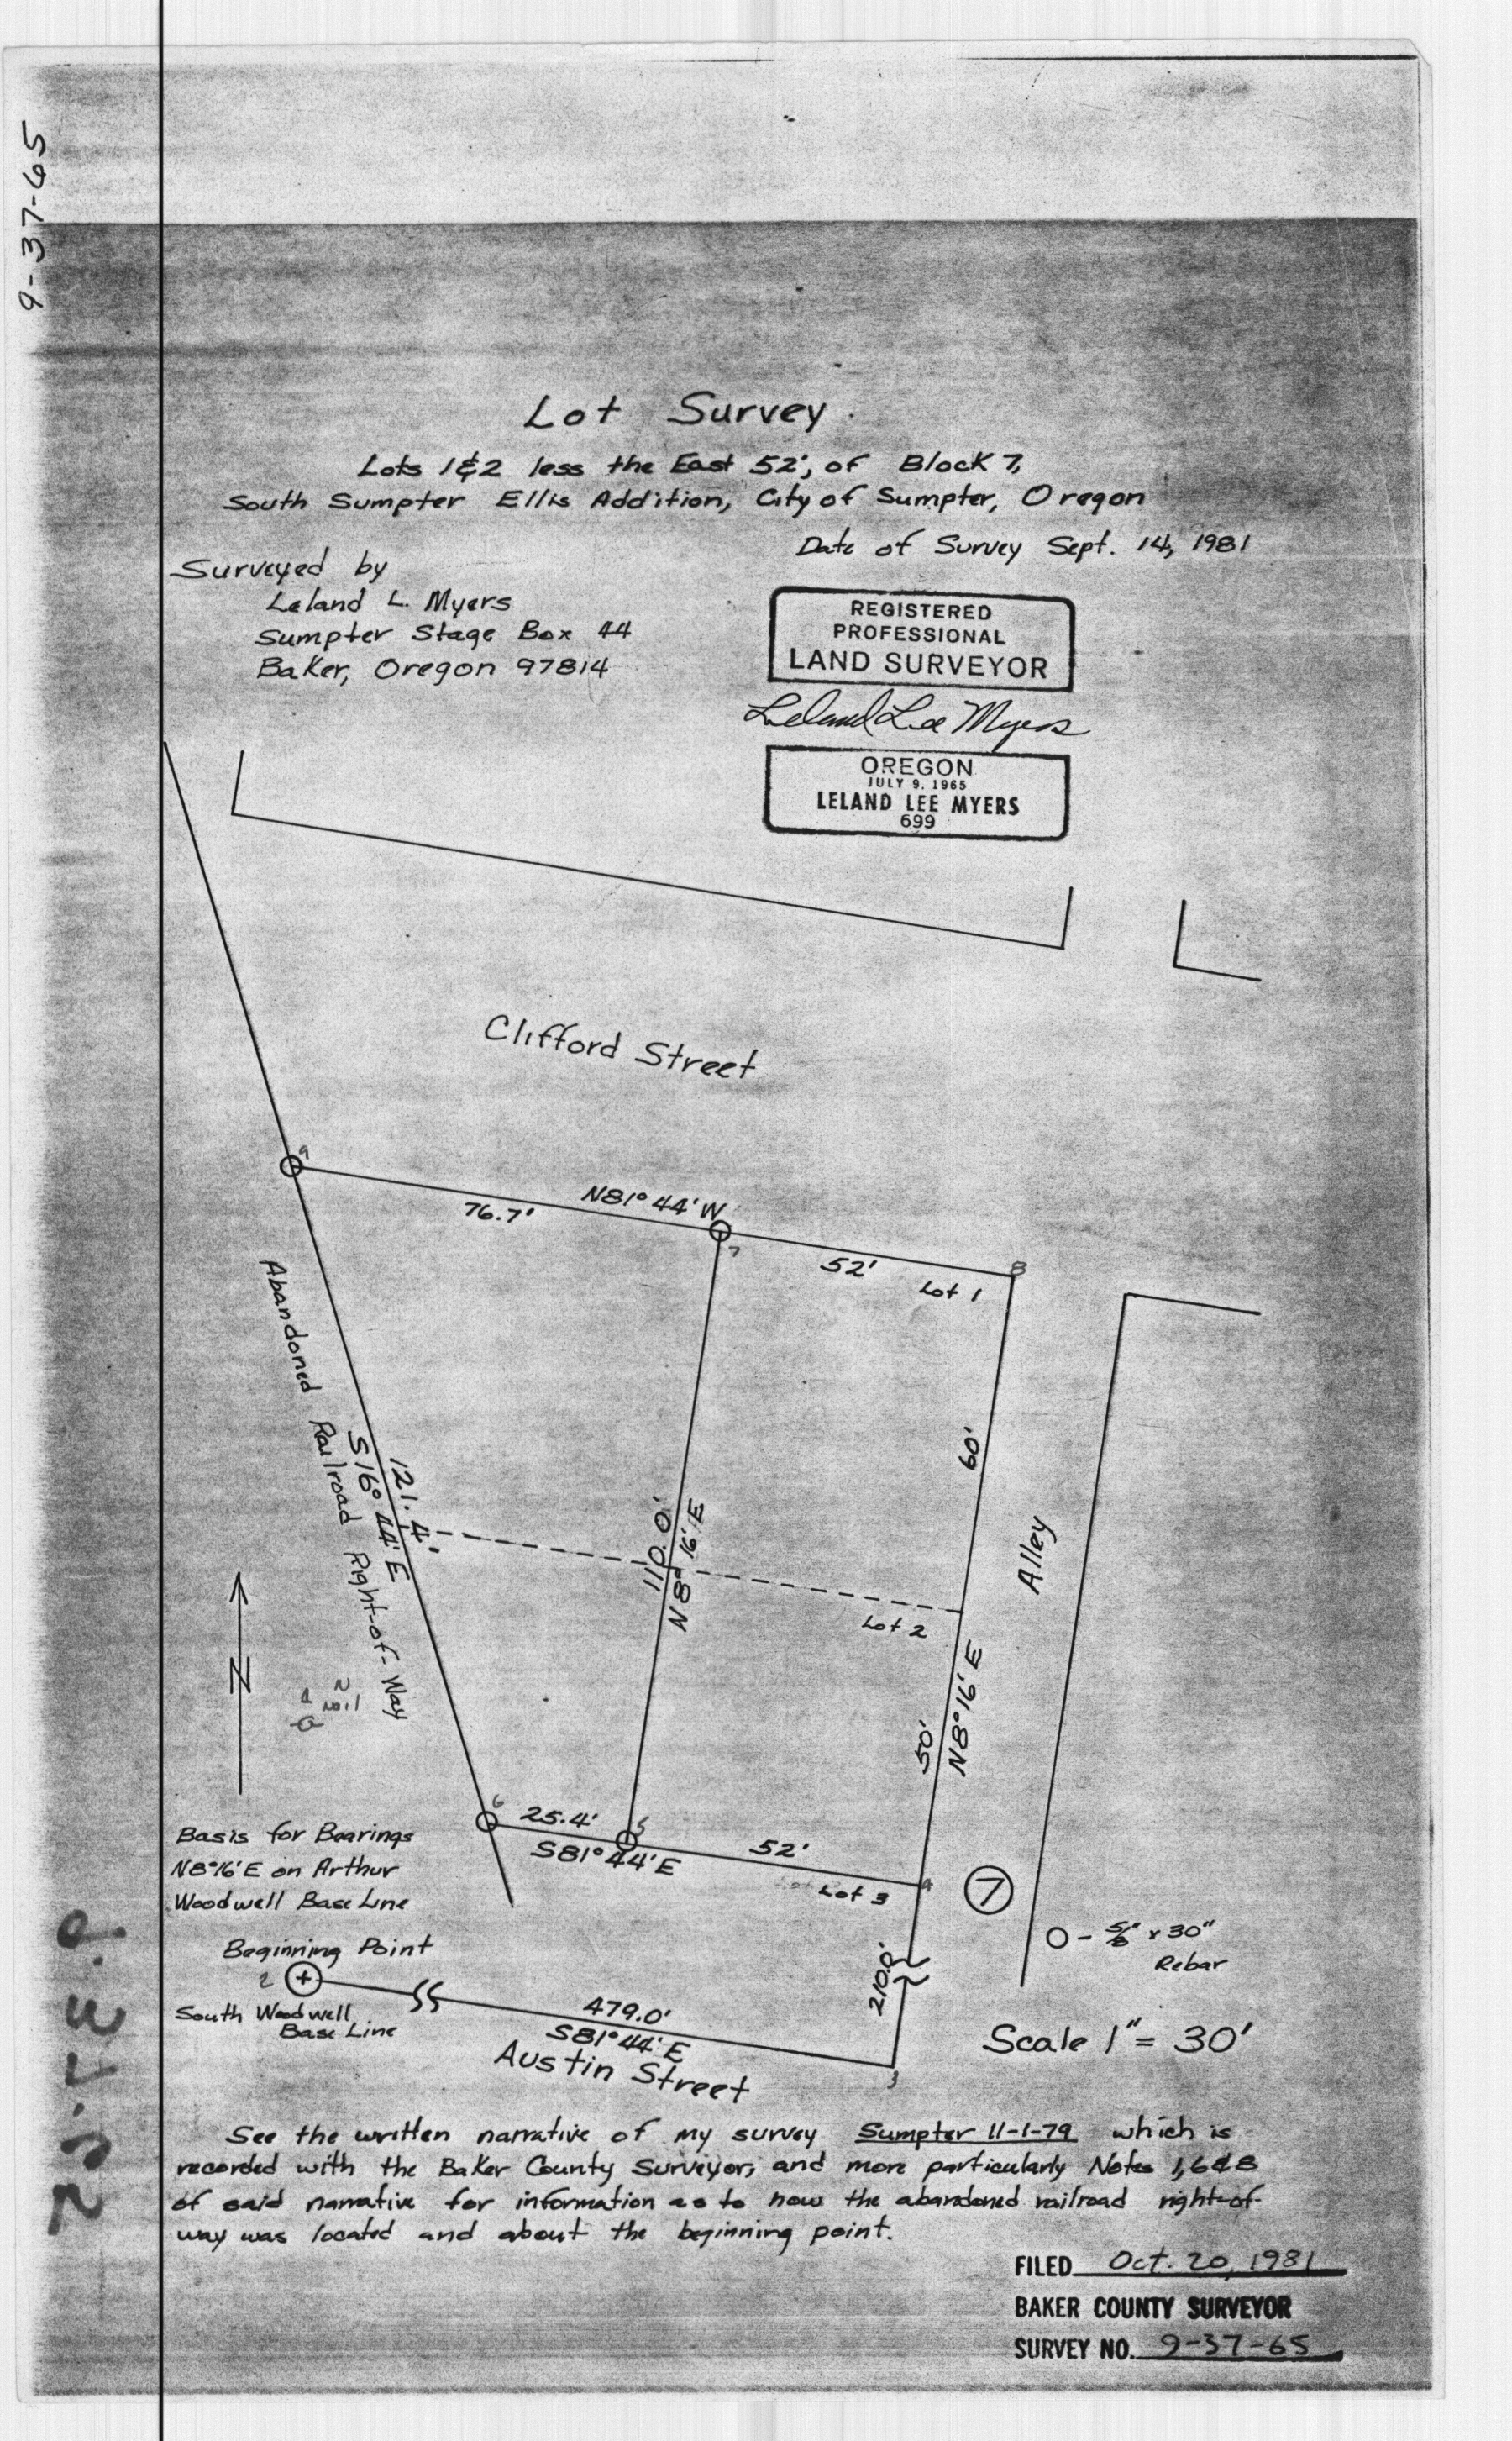 9-37-65
Lot Survey
Lots 1&2 less the East 52', of Block 7,
South Sumpter Ellis Addition, City of Sumpter, Oregon
Date of Survey Sept. 14, 1981
Surveyed by
Leland L. Myers
Sumpter Stage Box 44
Baker, Oregon 97814
REGISTERED
PROFESSIONAL
LAND SURVEYOR
Leland Lee Myers
OREGON
JULY 9, 1965
LELAND LEE MYERS
699
Clifford Street
9
N81°44'W
76.7'
7
52'
8
Lot 1
Abandoned Railroad Right-of-Way
S16°44'E
121.4'
110.0'
N8°16'E
60'
Alley
Lot 2
50'
N8°16'E
N
6
25.4'
S81°44'E
5
52'
Lot 3
4
7
Basis for Bearings
N8°16'E on Arthur
Woodwell Base Line
Beginning Point
2
South Woodwell
Base Line
479.0'
S81°44'E
Austin Street
210.0'
3
O - 5/8" x 30"
Rebar
Scale 1" = 30'
See the written narrative of my survey Sumpter 11-1-79 which is
recorded with the Baker County Surveyor, and more particularly Notes 1,6&8
of said narrative for information as to how the abandoned railroad right-of-
way was located and about the beginning point.
FILED Oct. 20, 1981
BAKER COUNTY SURVEYOR
SURVEY NO. 9-37-65